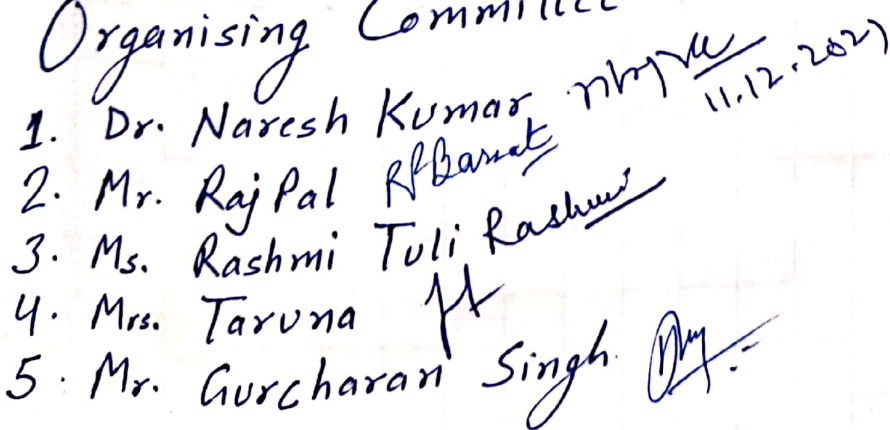 Organising Committee
1. Dr. Naresh Kumar
2. Mr. Raj Pal RPBarsat
3. Ms. Rashmi Tuli Rashmi
4. Mrs. Taruna
5. Mr. Gurcharan Singh